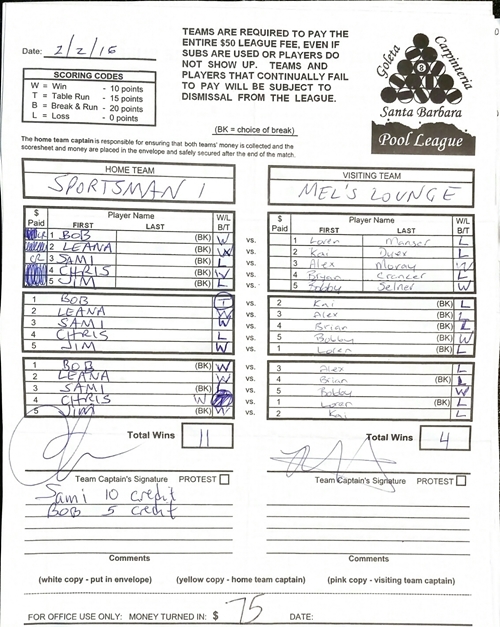 TEAMS ARE REQUIRED TO PAY THE
ENTIRE $50 LEAGUE FEE, EVEN IF
SUBS ARE USED OR PLAYERS DO
NOT SHOW UP. TEAMS AND
PLAYERS THAT CONTINUALLY FAIL
TO PAY WILL BE SUBJECT TO
DISMISSAL FROM THE LEAGUE.
Date: 2/2/16
SCORING CODES
W = Win - 10 points
T = Table Run - 15 points
B = Break & Run - 20 points
L = Loss - 0 points
Goleta
Carpinteria
8
Santa Barbara
Pool League
(BK = choice of break)
The home team captain is responsible for ensuring that both teams' money is collected and the
scoresheet and money are placed in the envelope and safely secured after the end of the match.
HOME TEAM
SPORTSMAN 1
VISITING TEAM
MEL'S LOUNGE
$ Paid Player Name FIRST LAST W/L B/T
$ Paid Player Name FIRST LAST W/L B/T
CR 1 BOB (BK) W vs. 1 Loren L
2 LEANA (BK) W vs. 2 Kai L
CR 3 SAMI (BK) L vs. 3 Alex W
4 CHRIS (BK) W vs. 4 Bryan L
5 JIM (BK) L vs. 5 Bobby Selner W
1 BOB T vs. 2 Kai (BK) L
2 LEANA W vs. 3 Alex (BK)
3 SAMI W vs. 4 Brian (BK) L
4 CHRIS L vs. 5 Bobby (BK) W
5 JIM W vs. 1 Loren (BK) L
1 BOB (BK) W vs. 3 Alex L
2 LEANA W vs. 4 Brian (BK) L
3 SAMI (BK) L vs. 5 Bobby W
4 CHRIS W vs. 1 Loren (BK) L
5 JIM (BK) W vs. 2 Kai L
Total Wins 11
Total Wins 4
Team Captain's Signature PROTEST
Team Captain's Signature PROTEST
Sami 10 credit
BOB 5 credit
Comments
Comments
(white copy - put in envelope) (yellow copy - home team captain) (pink copy - visiting team captain)
FOR OFFICE USE ONLY: MONEY TURNED IN: $ 75 DATE: